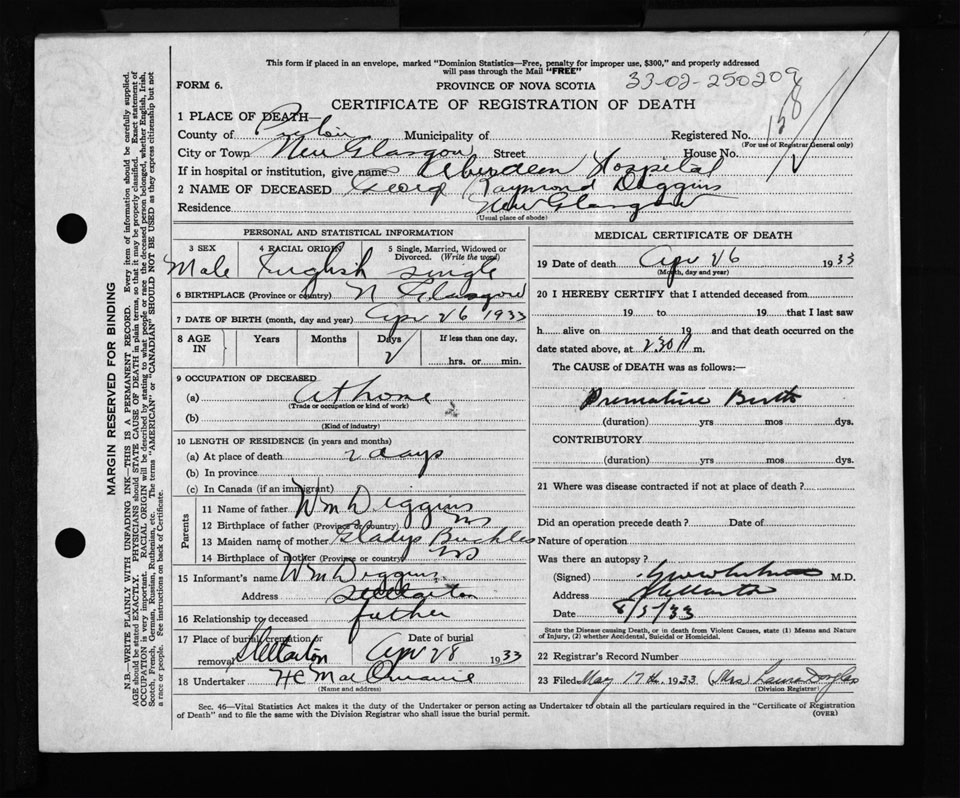 This form if placed in an envelope, marked "Dominion Statistics—Free, penalty for improper use, $300," and properly addressed
will pass through the Mail "FREE"
33-02-250209
FORM 6.
PROVINCE OF NOVA SCOTIA
CERTIFICATE OF REGISTRATION OF DEATH
158
1 PLACE OF DEATH—
County of Pictou Municipality of Registered No.
(For use of Registrar General only)
City or Town New Glasgow Street House No.
If in hospital or institution, give name Aberdeen Hospital
2 NAME OF DECEASED George Raymond Diggins
Residence New Glasgow
(Usual place of abode)
PERSONAL AND STATISTICAL INFORMATION
3 SEX 4 RACIAL ORIGIN 5 Single, Married, Widowed or Divorced. (Write the word)
Male English single
6 BIRTHPLACE (Province or country) N Glasgow
7 DATE OF BIRTH (month, day and year) Apr 26 1933
8 AGE IN Years Months Days If less than one day,
2 hrs. or min.
9 OCCUPATION OF DECEASED
(a) at home
(Trade or occupation or kind of work)
(b)
(Kind of industry)
10 LENGTH OF RESIDENCE (in years and months)
(a) At place of death 2 days
(b) In province
(c) In Canada (if an immigrant)
Parents
11 Name of father Wm Diggins
12 Birthplace of father (Province or country) NS
13 Maiden name of mother Gladys Buckles
14 Birthplace of mother (Province or country) NS
15 Informant's name Wm Diggins
Address Stellarton
16 Relationship to deceased father
17 Place of burial, cremation or removal Date of burial
Stellarton Apr 28 1933
18 Undertaker H C Mac
(Name and address)
MEDICAL CERTIFICATE OF DEATH
19 Date of death Apr 26 1933
(Month, day and year)
20 I HEREBY CERTIFY that I attended deceased from
19 to 19 that I last saw
h alive on 19 and that death occurred on
date stated above, at 230 A m.
The CAUSE of DEATH was as follows:—
Premature Birth
(duration) yrs mos dys.
CONTRIBUTORY
(duration) yrs mos dys.
21 Where was disease contracted if not at place of death?
Did an operation precede death? Date of
Nature of operation
Was there an autopsy?
(Signed) M.D.
Address Stellarton
Date 8/5/33
State the Disease causing Death, or in death from Violent Causes, state (1) Means and Nature
of Injury, (2) whether Accidental, Suicidal or Homicidal.
22 Registrar's Record Number
23 Filed May 17th 1933 (Mrs) Laura Douglas
(Division Registrar)
Sec. 46—Vital Statistics Act makes it the duty of the Undertaker or person acting as Undertaker to obtain all the particulars required in the "Certificate of Registration
of Death" and to file the same with the Division Registrar who shall issue the burial permit.
(OVER)
MARGIN RESERVED FOR BINDING
N.B.—WRITE PLAINLY WITH UNFADING INK—THIS IS A PERMANENT RECORD. Every item of information should be carefully supplied.
AGE should be stated EXACTLY. PHYSICIANS should STATE CAUSE OF DEATH in plain terms, so that it may be properly classified. Exact statement of
OCCUPATION is very important. RACIAL ORIGIN will be described by stating to what people or race the deceased person belonged, whether English, Irish,
Scotch, French, German, Russian, Ruthenian, etc. The terms "AMERICAN" or "CANADIAN" SHOULD NOT BE USED as they express citizenship but not
a race or people. See instructions on back of Certificate.